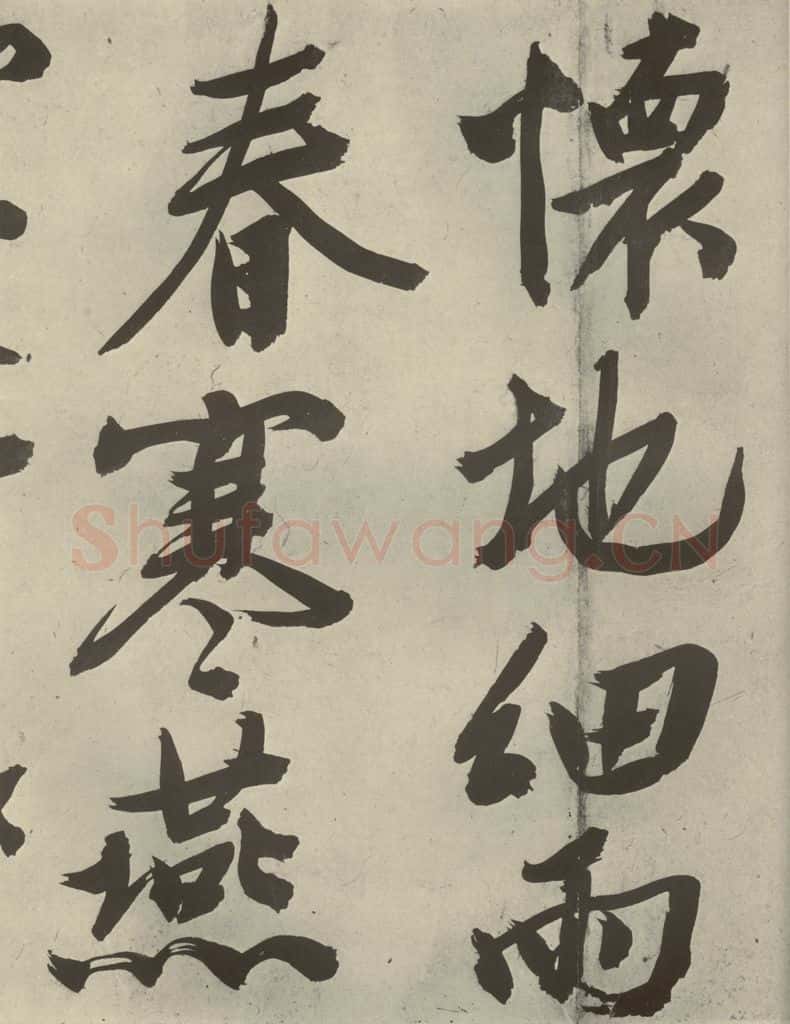 懷地細雨
春寒燕
Shufawang.CN